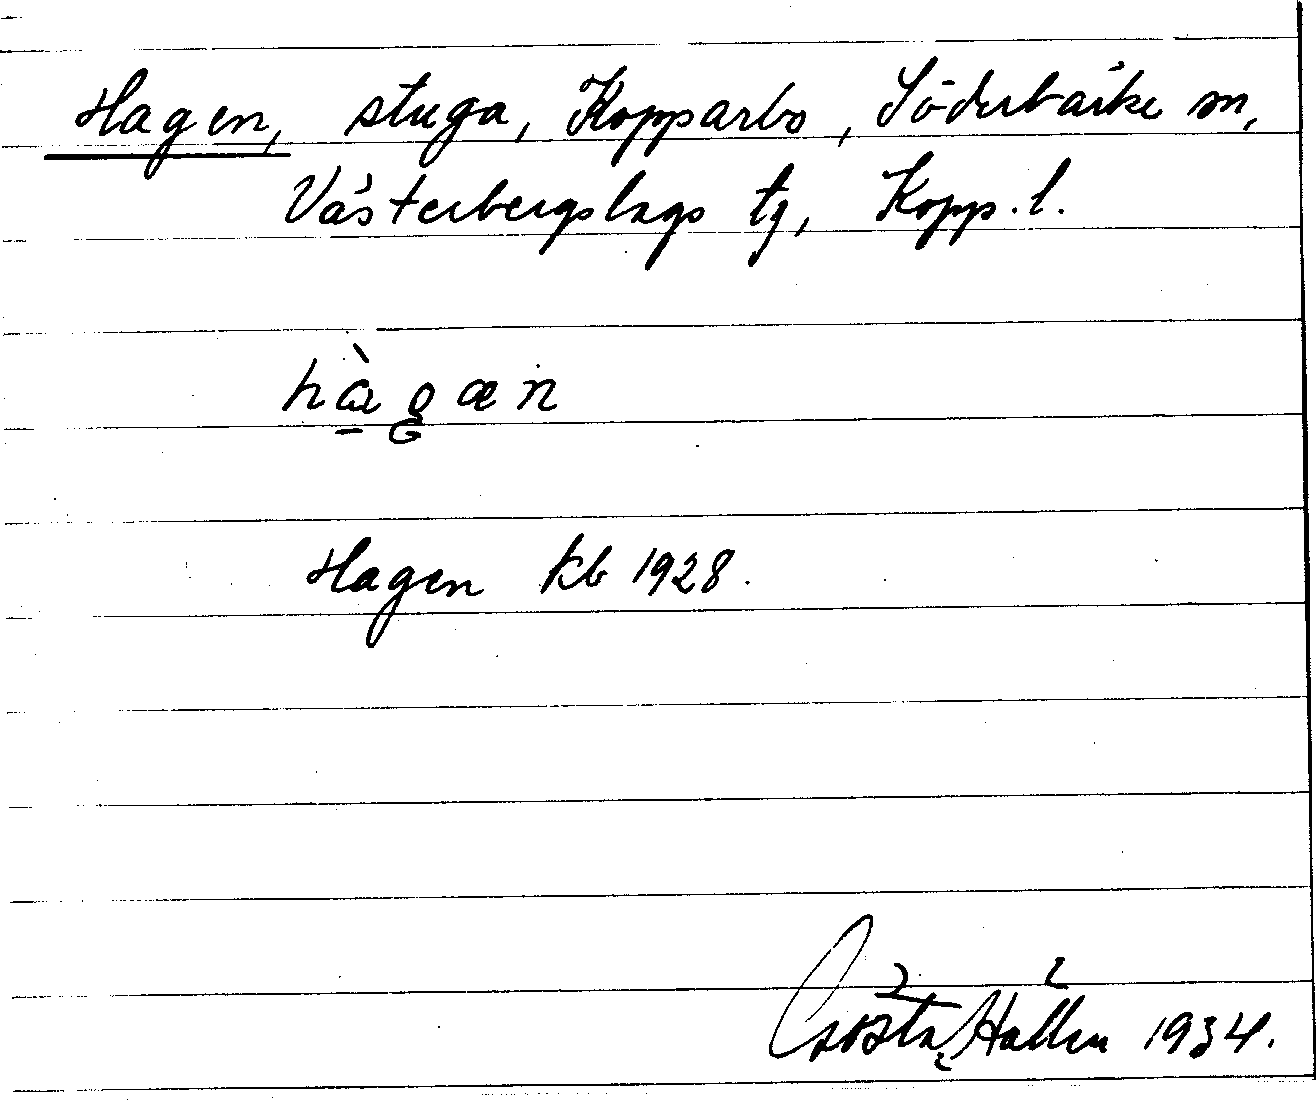 Hagen, stuga, Kopparbo, Söderbärke sn,
Västerbergslags tg, Kopp. l.
hàgæn
Hagen kb 1928.
Gösta Hallén 1934.